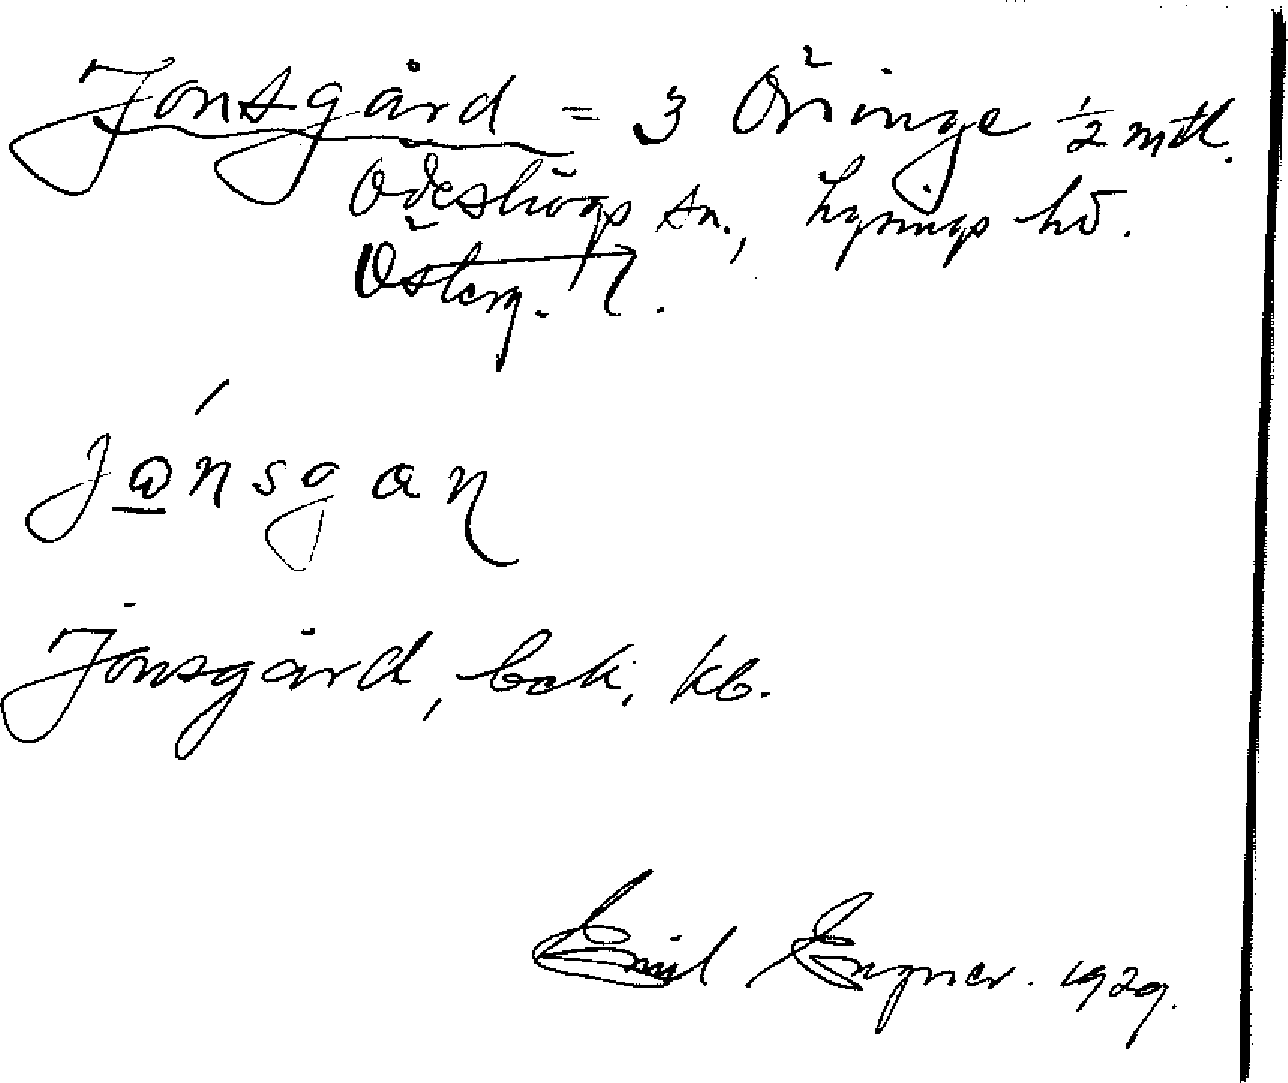 Jonsgård = 3 Öringe ½ mtl.
Ödeshögs sn., Lysings hd.
Österg. l.
jɷnsgaɳ
Jonsgård, bok, kb.
Emil Engner. 1929.